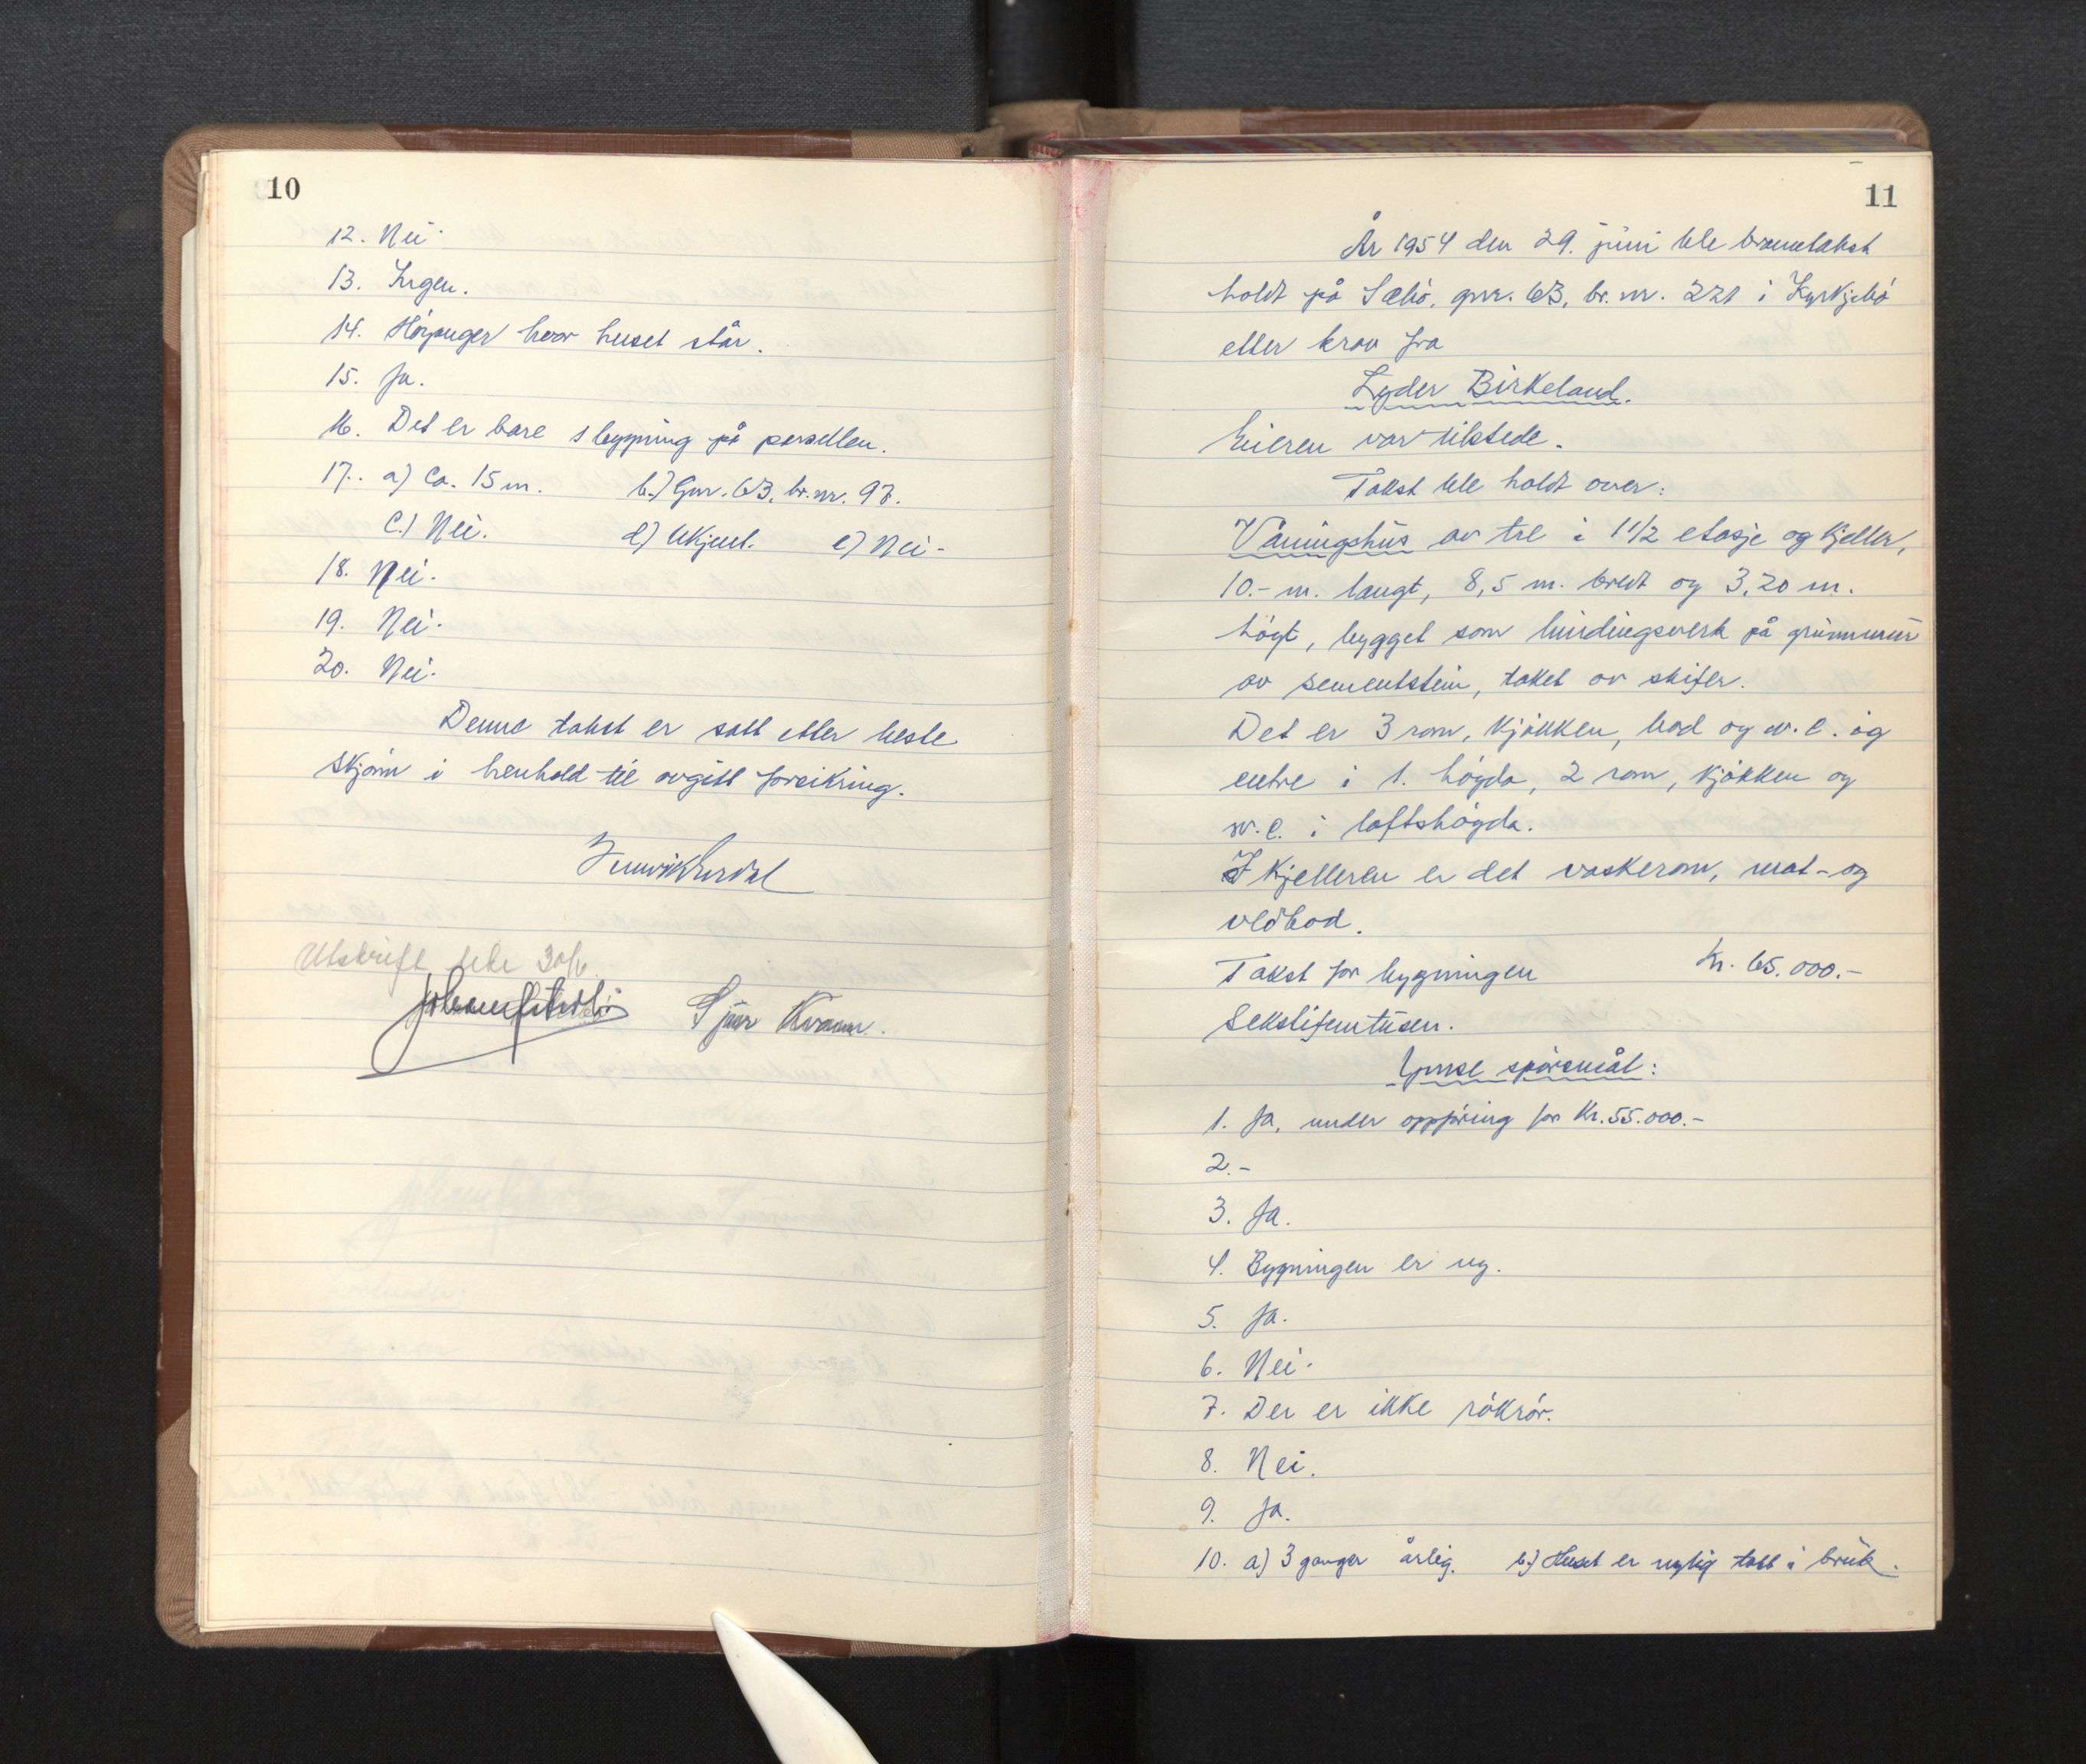 10
12. Nei.
13. Ingen.
14. Høyanger hvor huset står.
15. Ja.
16. Det er bare 1 bygning på parsellen.
17. a) Ca. 15 m. b.) Gnr. 63, br. nr. 97.
C.) Nei. d) Ukjent. e) Nei.
18. Nei.
19. Nei.
20. Nei.
Denne takst er satt etter beste
skjønn i henhold til avgitt forsikring.
Utskrift 30/6.
Sjur Kvamm.
11
År 1954 den 29. juni ble branntakst
holdt på Sæbö, gnr. 63, br. nr. 221 i Kyrkjebö
etter krav fra
Lyder Birkeland.
Eieren var tilstede.
Takst ble holdt over:
Våningshus av tre i 1 1/2 etasje og kjeller,
10.- m. langt, 8,5 m. bredt og 3.20 m.
högt, bygget som bindingsverk på grunnmur
av sementstein, taket av skifer.
Det er 3 rom, kjökken, bad og w.c. og
entre i 1. högda, 2 rom, kjökken og
w.c. i loftshögda.
I kjelleren er det vaskerom, mat- og
vedbod.
Takst for bygningen Kr. 65.000.-
Sekstifemtusen.
Ymse spörsmål:
1. Ja, under oppföring for Kr. 55.000.-
2. -
3. Ja.
4. Bygningen er ny.
5. Ja.
6. Nei.
7. Der er ikke rökrör.
8. Nei.
9. Ja.
10. a) 3 ganger årlig. b.) Huset er nylig tatt i bruk.